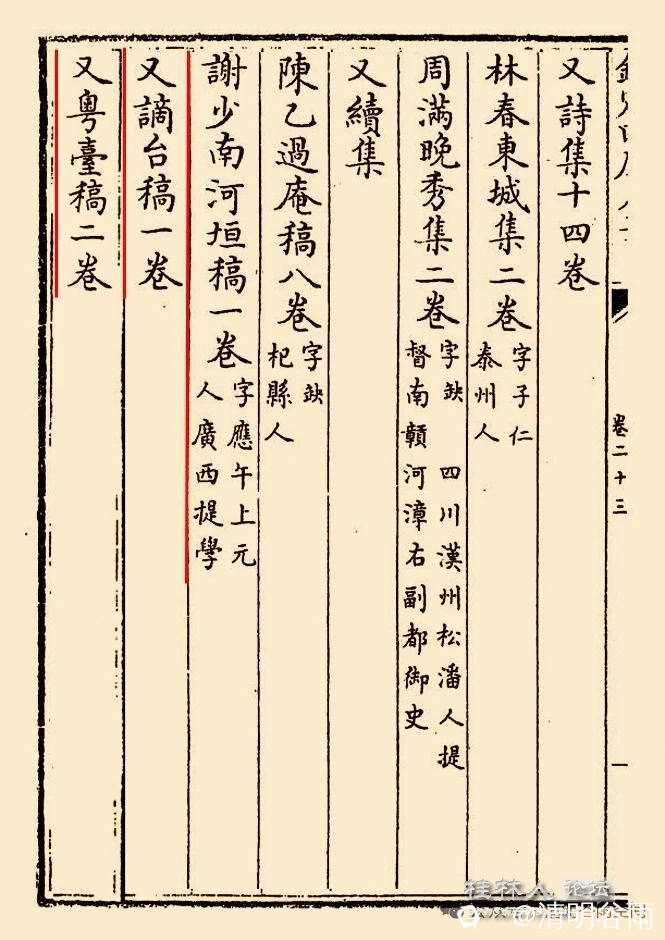 卷二十三
一
又詩集十四卷
林春東城集二卷 字子仁
泰州人
周滿晚秀集二卷 字缺 四川漢州松潘人提
督南贛河漳右副都御史
又續集
陳乙過庵稿八卷 字缺
杞縣人
謝少南河垣稿一卷 字應午上元
人廣西提學
又謫台稿一卷
又粵臺稿二卷
桂林人论坛
@清明谷雨